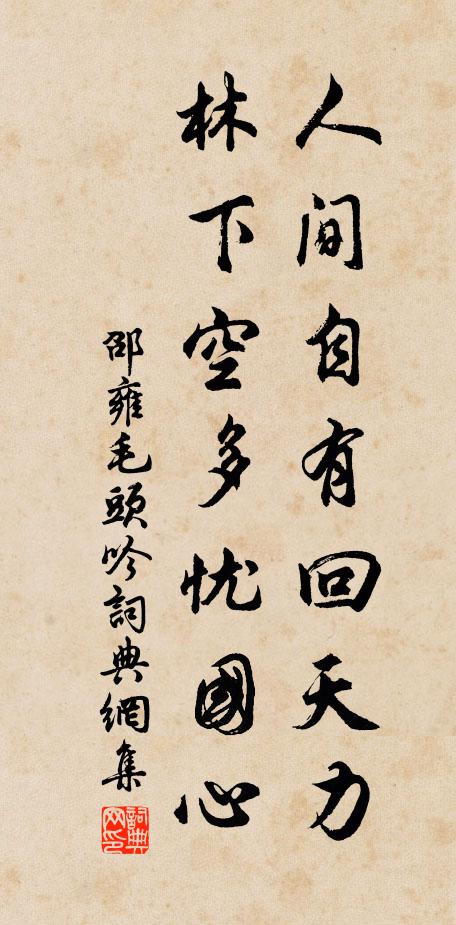 人间自有回天力
林下空多忧國心
邵雍毛頭吟詞典網集
詞典网印